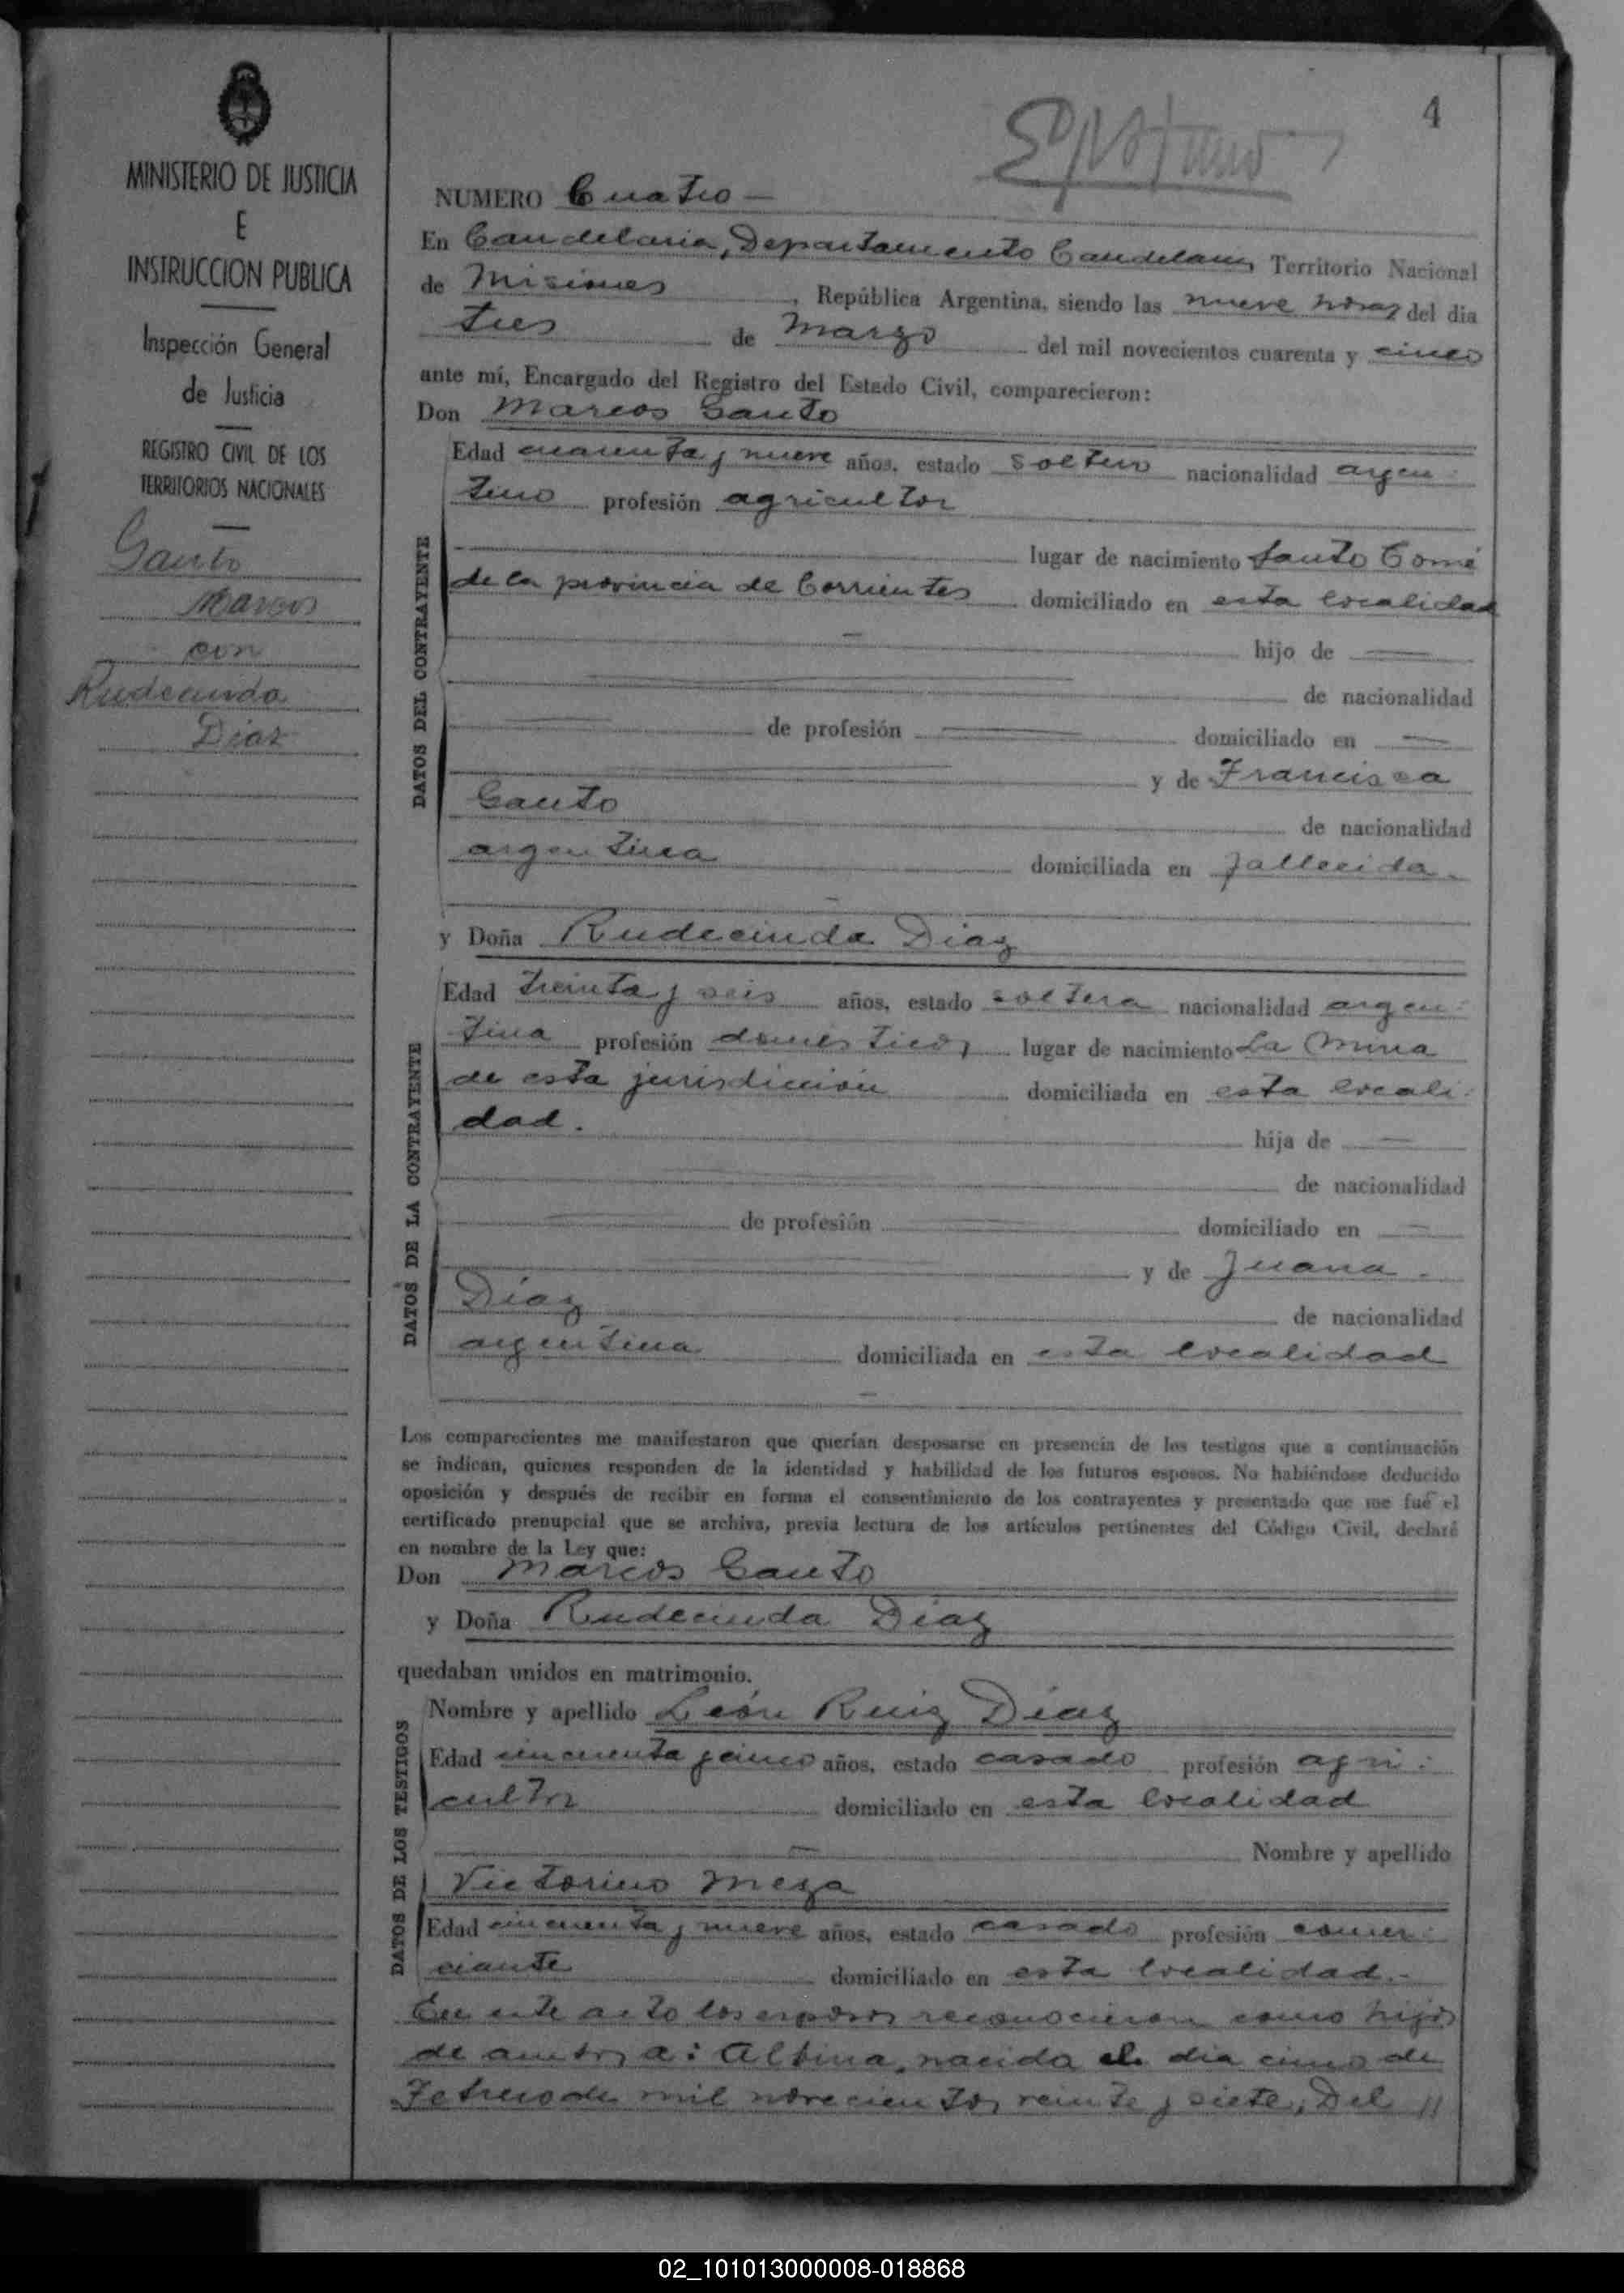 4
MINISTERIO DE JUSTICIA
E
INSTRUCCION PUBLICA
Inspección General
de Justicia
REGISTRO CIVIL DE LOS
TERRITORIOS NACIONALES
Gauto
Marcos
con
Rudecinda
Diaz
NUMERO Cuatro —
En Candelaria, Departamento Candelaria, Territorio Nacional
de Misiones, República Argentina, siendo las nueve horas del dia
tres de Marzo del mil novecientos cuarenta y cinco
ante mí, Encargado del Registro del Estado Civil, comparecieron:
Don Marcos Gauto
DATOS DEL CONTRAYENTE
Edad cuarenta y nueve años, estado soltero nacionalidad argen-
tino profesión agricultor
lugar de nacimiento Santo Tomé
de la provincia de Corrientes domiciliado en esta localidad
hijo de
de nacionalidad
de profesión domiciliado en
y de Francisca
Gauto
de nacionalidad
argentina domiciliada en fallecida.
y Doña Rudecinda Diaz
DATOS DE LA CONTRAYENTE
Edad treinta y seis años, estado soltera nacionalidad argen-
tina profesión domésticos lugar de nacimiento La Mina
de esta jurisdicción domiciliada en esta locali-
dad. hija de
de nacionalidad
de profesión domiciliado en
y de Juana
Díaz de nacionalidad
argentina domiciliada en esta localidad
Los comparecientes me manifestaron que querían desposarse en presencia de los testigos que a continuación
se indican, quienes responden de la identidad y habilidad de los futuros esposos. No habiéndose deducido
oposición y después de recibir en forma el consentimiento de los contrayentes y presentado que me fué el
certificado prenupcial que se archiva, previa lectura de los artículos pertinentes del Código Civil, declaré
en nombre de la Ley que:
Don Marcos Gauto
y Doña Rudecinda Diaz
quedaban unidos en matrimonio.
DATOS DE LOS TESTIGOS
Nombre y apellido León Ruiz Díaz
Edad cincuenta y cinco años, estado casado profesión agri-
cultor domiciliado en esta localidad
Nombre y apellido
Victorino Meza
Edad cincuenta y nueve años, estado casado profesión comer-
ciante domiciliado en esta localidad.-
En este acto los esposos reconocieron como hijos
de ambos a: Albina, nacida el dia cinco de
Febrero de mil novecientos veinte y siete, Del //
02_101013000008-018868